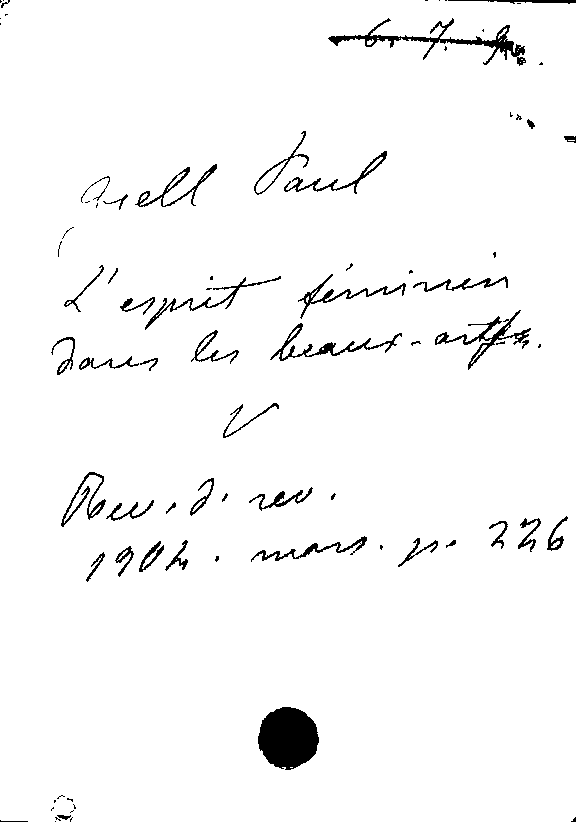 6. 7. 9
Gsell Paul
L'esprit féminin
dans les beaux-arts.
V
Rev. d. rev.
1904. mars. p. 226